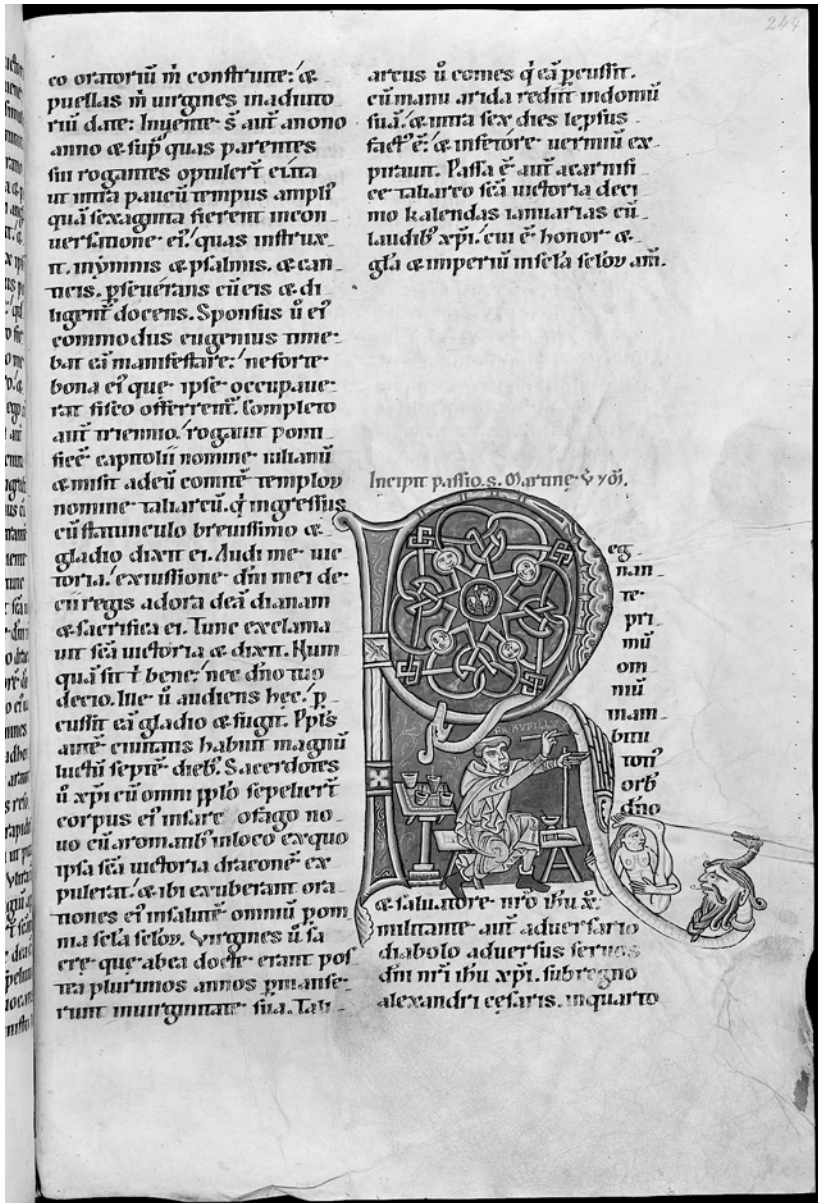 244
co oratoriū m̄ construite: ⁊
puellas m̄ uirgines inadiuto
riū date: Inuente s̄ aut̄ anono
anno ⁊ sup̄ quas parentes
sui rogantes optulert̄ ei. ita
ut intra paucū tempus ampli᾽
quā sexaginta fierent incon
uersatione ei᾽. quas instrux
it. inẏmnis ⁊ psalmis. ⁊ can
ticis. p̱seuerans cū eis ⁊ di
ligent̄ docens. Sponsus ū ei᾽
commodus eugenius time
bat eā manifestare: ne forte
bona ei᾽ que ipse occupaue
rat fisco offerrent̄. Completo
aut̄ triennio. rogauit ponti
ficē capitolii nomine iulianū
⁊ misit adeū comitē temploꝝ
nomine taliarcū. q̇ ingressus
cū statunculo breuissimo ⁊
gladio dixit ei. Audi me uic
toria. exiussione dn̄i mei de
cii regis adora deā dianam
⁊ sacrifica ei. Tunc exclama
uit sc̄a uictoria ⁊ dixit. Num
quā sit t̄ bene: nec dn̄o tuo
decio. Ille ū audiens hec. p̱
cussit eā gladio ⁊ fugit. Pp̄ls
autē ciuitatis habuit magnū
luctū septē dieb᾽. Sacerdotes
ū xp̄i cū omni pp̄lo sepeliert̄
corpus ei᾽ insarcofago no
uo cū aromatib᾽ inloco exquo
ipsa sc̄a uictoria draconē ex
pulerat. ⁊ ibi exuberant ora
tiones ei᾽ insalutē omniū p om
nia sc̄la sc̄loꝝ. Virgines ū sa
cre que abea docte erant pos
tea plurimos annos p̱manse
runt inuirginitate sua. Tali
arcus ū comes q̇ eā p̱cussit.
cū manu arida rediit indomū
suā. ⁊ intra sex dies lepsus
fact᾽ ē: ⁊ infetore uermiū ex
pirauit. Passa ē aut̄ acarnifi
ce taliarco sc̄a uictoria deci
mo kalendas ianuarias cū
laudib᾽ xp̄i. cui ē honor ⁊
gl̄a ⁊ imperiū insc̄la sc̄loꝝ am̄.
Incipit passio. s. Martine
Reg
nan
te
pri
mū
om
niū
mam
bitu
toti᾽
orb᾽
dn̄o
FR RVFILLV᾽
⁊ saluatore nr̄o ih̄u x̄.
militante aut̄ aduersario
diabolo aduersus seruos
dn̄i nr̄i ih̄u xp̄i. subregno
alexandri cęsaris. inquarto